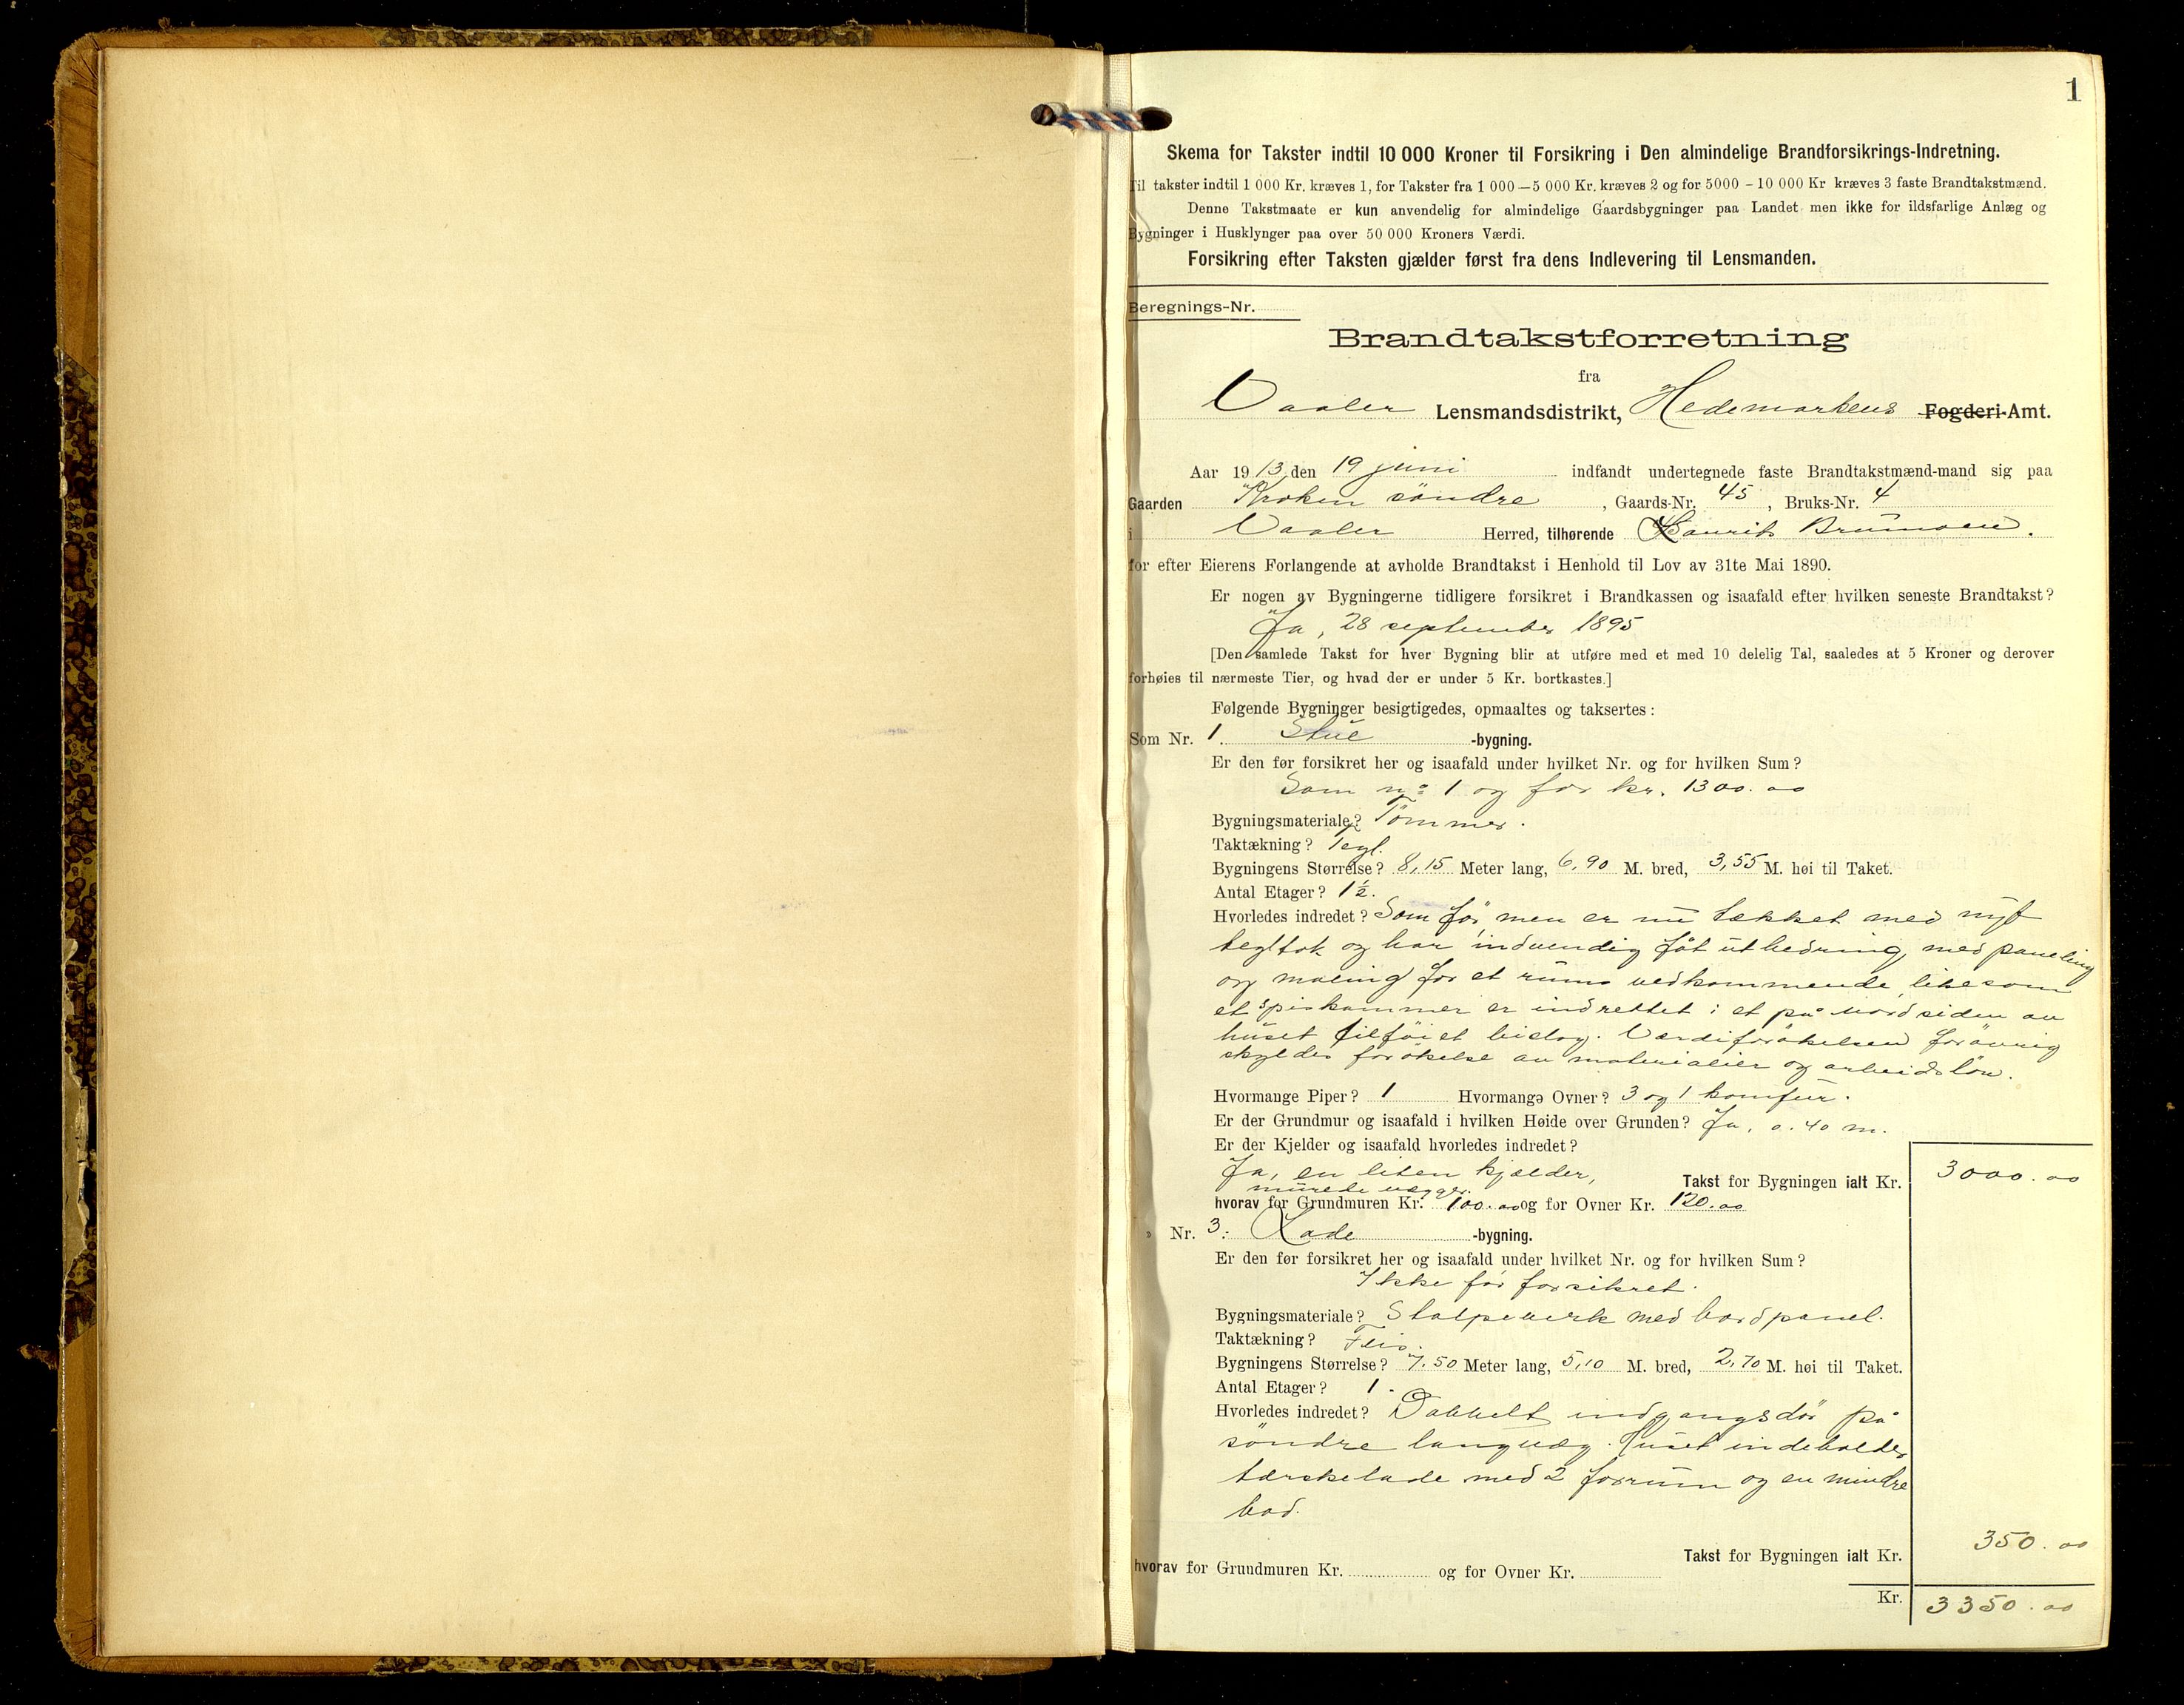 1
Skema for Takster indtil 10 000 Kroner til Forsikring i Den almindelige Brandforsikrings-Indretning.
Til takster indtil 1 000 Kr. kræves 1, for Takster fra 1 000 — 5 000 Kr. kræves 2 og for 5000 - 10 000 Kr kræves 3 faste Brandtakstmænd.
Denne Takstmaate er kun anvendelig for almindelige Gaardsbygninger paa Landet men ikke for ildsfarlige Anlæg og
Bygninger i Husklynger paa over 50 000 Kroners Værdi.
Forsikring efter Taksten gjælder først fra dens Indlevering til Lensmanden.
Beregnings-Nr.
Brandtakstforretning
fra
Vaaler Lensmandsdistrikt, Hedemarkens Fogderi-Amt.
Aar 1913, den 19 juni indfandt undertegnede faste Brandtakstmænd-mand sig paa
Gaarden Kroken söndre, Gaards-Nr. 45, Bruks-Nr. 4
i Vaaler Herred, tilhørende Laurits Brumoen.
for efter Eierens Forlangende at avholde Brandtakst i Henhold til Lov av 31te Mai 1890.
Er nogen av Bygningerne tidligere forsikret i Brandkassen og isaafald efter hvilken seneste Brandtakst?
Ja, 28 september 1895
[Den samlede Takst for hver Bygning blir at utføre med et med 10 delelig Tal, saaledes at 5 Kroner og derover
forhøies til nærmeste Tier, og hvad der er under 5 Kr. bortkastes.]
Følgende Bygninger besigtigedes, opmaaltes og taksertes:
Som Nr. 1. Stue -bygning.
Er den før forsikret her og isaafald under hvilket Nr. og for hvilken Sum?
Som no 1 og for kr. 1300.00
Bygningsmateriale? Tömmer.
Taktækning? Tegl.
Bygningens Størrelse? 8,15 Meter lang, 6,90 M. bred, 3,55 M. høi til Taket.
Antal Etager? 1½.
Hvorledes indredet? Som för, men er nu tækket med nyt
tegltak og har indvendig fåt utbedring, med paneling
og maling for et rums vedkommende, likesom
et spiskammer er indrettet i et på nordsiden av
huset tilföiet bislag. Værdiforökelsen forövrig
skyldes forökelse av materialier og arbeidslön.
Hvormange Piper? 1 Hvormange Ovner? 3 og 1 komfur.
Er der Grundmur og isaafald i hvilken Høide over Grunden? Ja, 0.40 m.
Er der Kjelder og isaafald hvorledes indredet?
Ja, en liten kjælder, Takst for Bygningen ialt Kr. 3000.00
murede vægger.
hvorav for Grundmuren Kr. 100.00 og for Ovner Kr. 120.00
» Nr. 3. Lade -bygning.
Er den før forsikret her og isaafald under hvilket Nr. og for hvilken Sum?
Ikke för forsikret.
Bygningsmateriale? Stolpeverk med bordpanel.
Taktækning? Flis.
Bygningens Størrelse? 7.50 Meter lang, 5,10 M. bred, 2,70 M. høi til Taket.
Antal Etager? 1.
Hvorledes indredet? Dobbelt indgangsdör på
söndre langvæg. Huset indeholder
tærskelade med 2 forrum og en mindre
bod.
Takst for Bygningen ialt Kr. 350.00
hvorav for Grundmuren Kr. og for Ovner Kr.
Kr. 3350.00